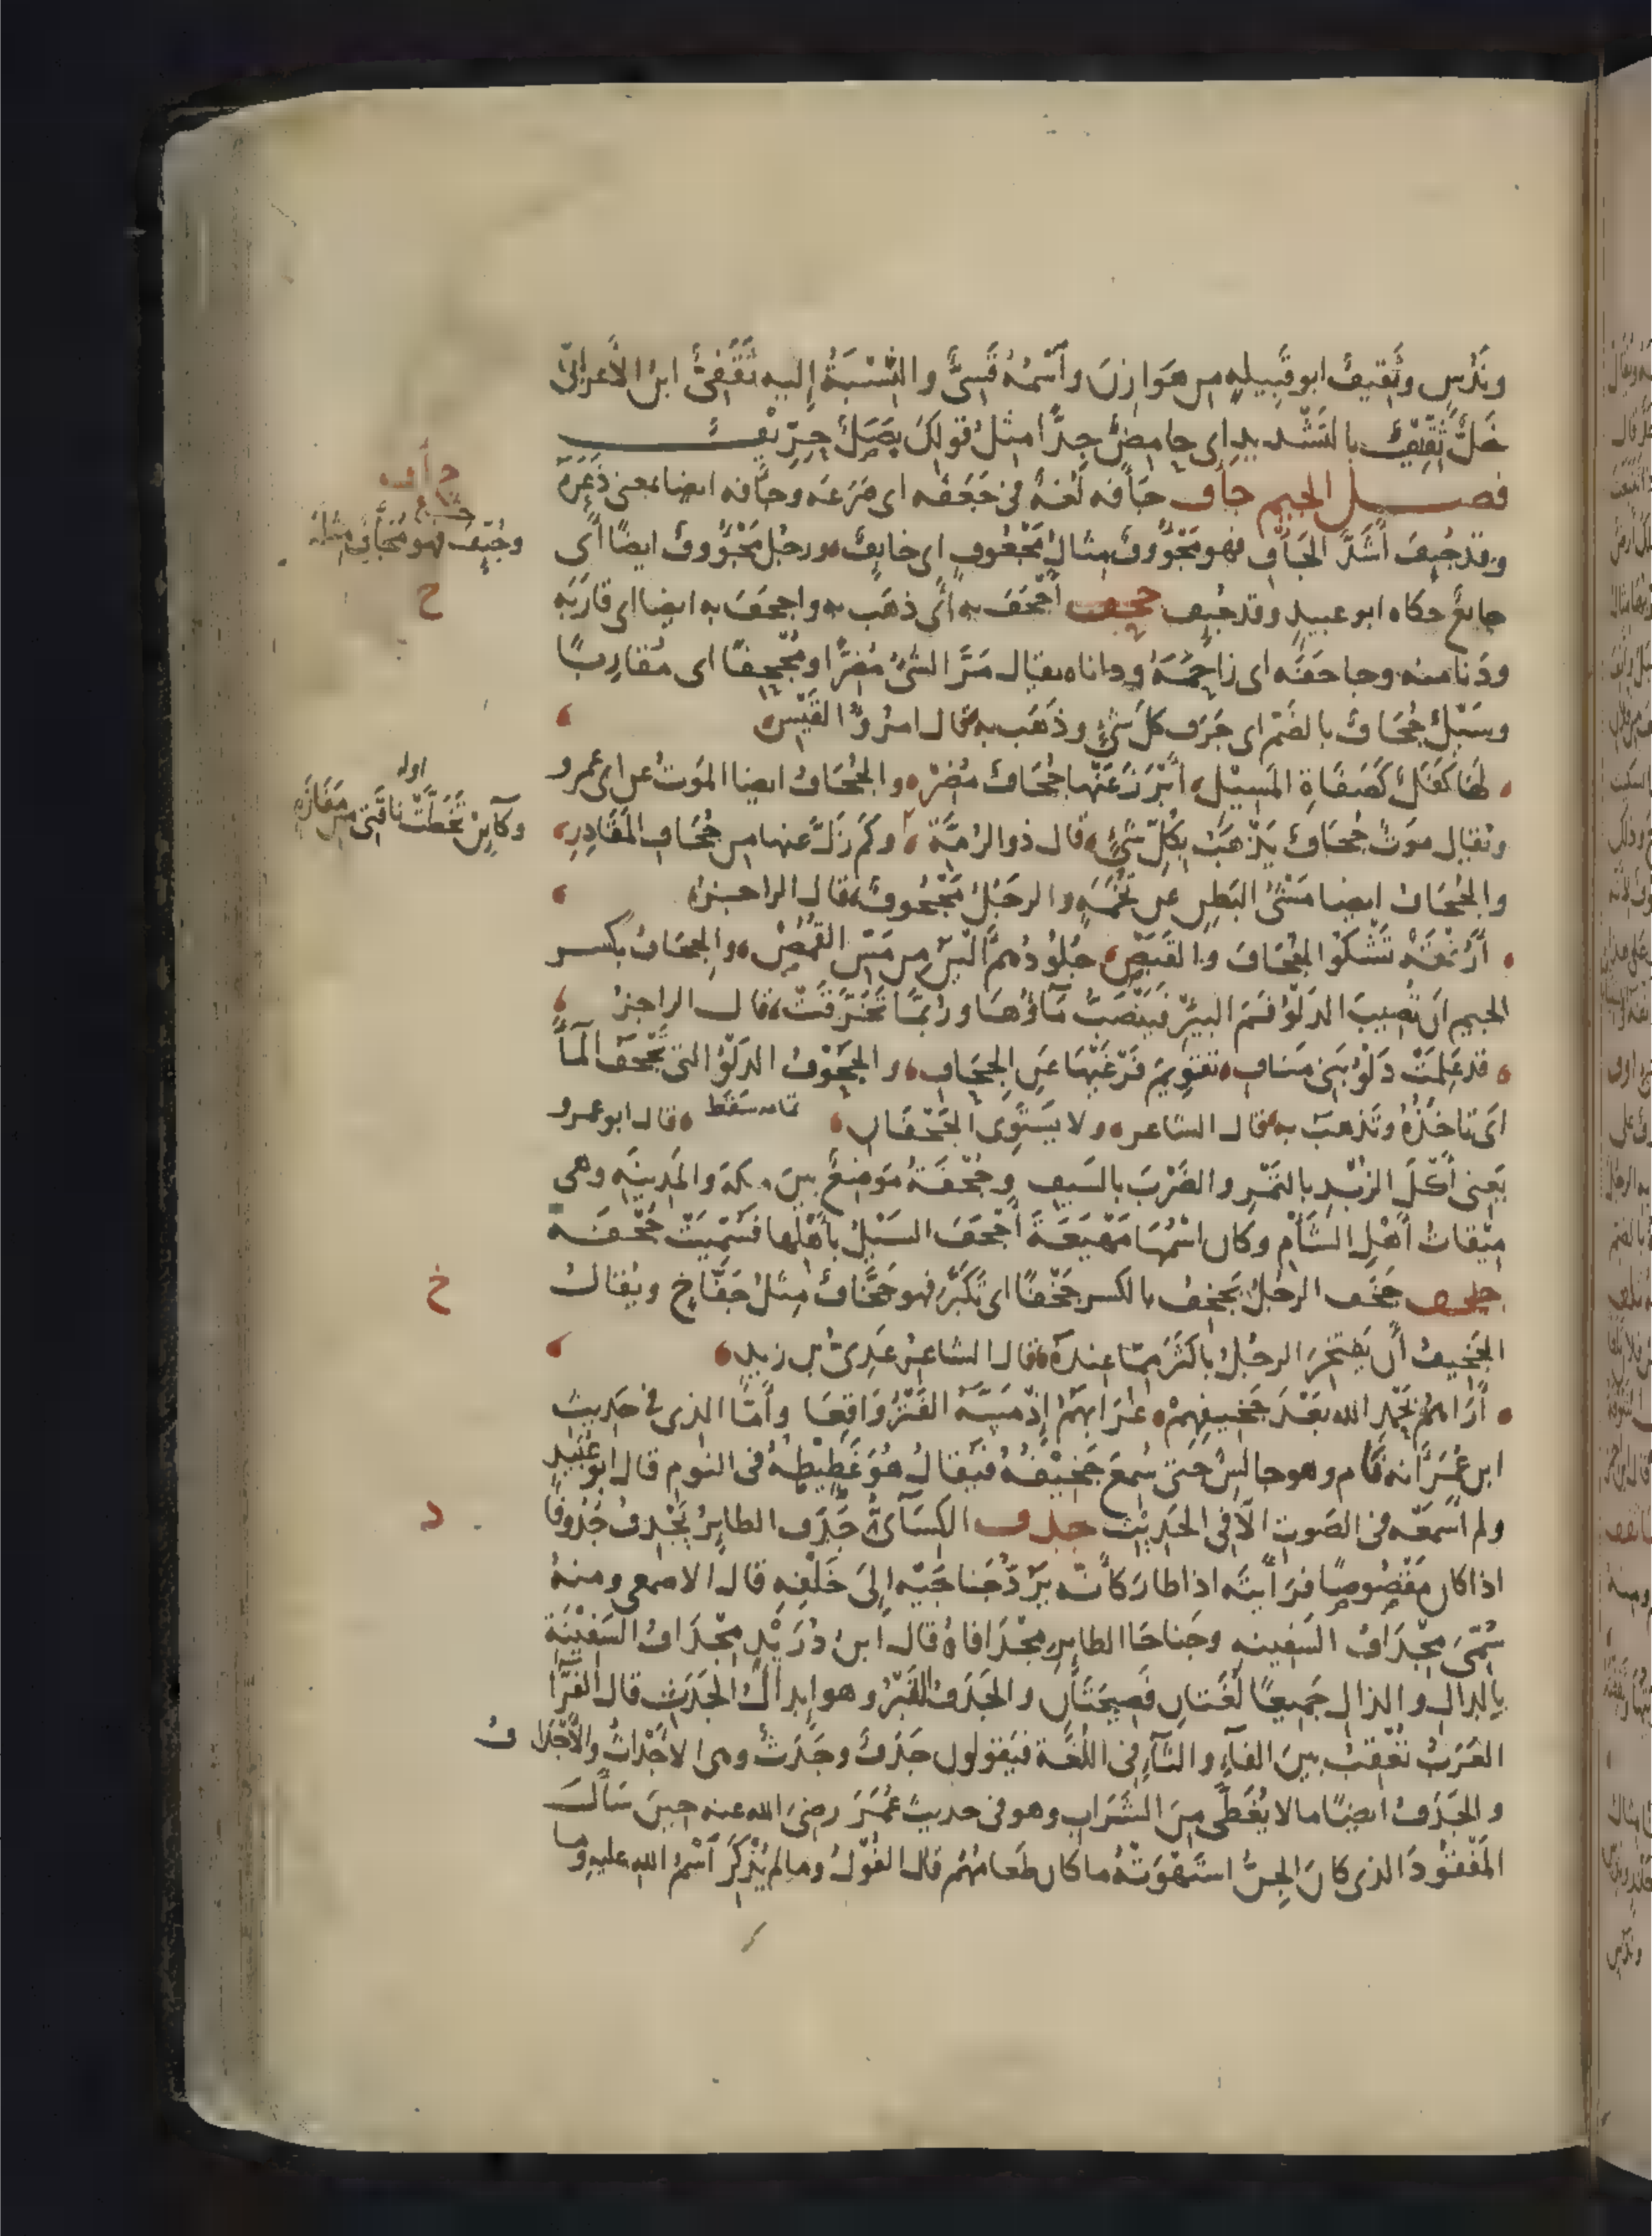 وندس وثقيف ابو قبيله من هوازن واسمه قسي والنسبة إليه ثقفي ابن الاعرابي
خل ثقيف بالتشديد اى حامض جدا مثل قولك بصل حريف
فصل الجيم جاف جأفه لغة فى جعفه اى صرعه وجأفه ايضا بمعنى ذعره
وقد جيف اشد الجأف فهو مجؤوف مثال مجعوف اى خايف ورجل مجؤوف ايضا اى
جايع حكاه ابو عبيد وقد جيف جحف أجحف به اى ذهب به واجحف به ايضا اى قاربه
ودنا منه وجاحفه اى زاحمه وداناه يقال مر الشئ مضرا ومجحفا اى مقاربا
وسيل جحاف بالضم اى جرف كل شئ وذهب به قال امرؤ القيس
لها كفل كصفاة المسيل ابرز عنها جحاف مضر والجحاف ايضا الموت عن ابى عمرو
ويقال موت جحاف يذهب بكل شئ قال ذو الرمة وكم زل عنها من جحاف المقادر
والجحاف ايضا مشى البطن عن تخمه والرجل مجحوف قال الراجز
أرفقة تشكوا الجحاف والقبص جلودهم الين من مس القمص والجحاف بكسر
الجيم ان تصيب الدلو فم البير فينصب ماؤها وربما تخرقت قال الراجز
قد علمت دلو بنى مناف تقويم فرغيها عن الجحاف والجحوف الدلو التى تجحف الماء
اى تاخذه وتذهب به قال الشاعر ولا يستوى الجحفان تمامه سقط قال ابو عمرو
يعنى أكل الزبد بالتمر والضرب بالسيف وجحفة موضع بين مكة والمدينه وهى
ميقات أهل الشأم وكان اسمها مهيعة أجحف السيل بأهلها فسميت جحفة
جخف جخف الرجل يجخف بالكسر جخفا اى تكبر فهو جخاف مثل جفاخ ويقال
الجخيف أن يفتخر الرجل باكثر مما عنده قال الشاعر عدى بن زيد
أراهم بحمد الله بعد جخيفهم غرابهم إذ مسه الفتر واقعا وأما الذى فى حديث
ابن عمر انه قام وهو جالس حتى سمع جخيفه فيقال هو غطيطه فى النوم قال ابو عبيد
ولم اسمعه فى الصوت الا فى الحديث جدف الكسائى جدف الطاير يجدف جدوفا
اذا كان مقصوصا فرأيته اذا طار كأنه يرد جناحيه إلى خلفه قال الاصمعى ومنه
سمى مجداف السفينه وجناحا الطاير مجدافاه قال ابن دريد مجداف السفينة
بالدال والذال جميعا لغتان فصيحتان والجدف القبر وهو ابدال الجدث قال الفرا
العرب تعقب بين الفاء والثاء فى اللغة فيقولون جدف وجدث وهى الاجداث والاجداف
والجدف ايضا ما لا يغطى من الشراب وهو فى حديث عمر رضى الله عنه حين سأل
المفقود الذى كان الجن استهوته ما كان طعامهم قال الفول وما لم يذكر اسم الله عليه وما
ج أ ف
وجيف فهو مجأف مثله
ح
اوله
وكاين تخطت ناقتى من مفازة
خ
د